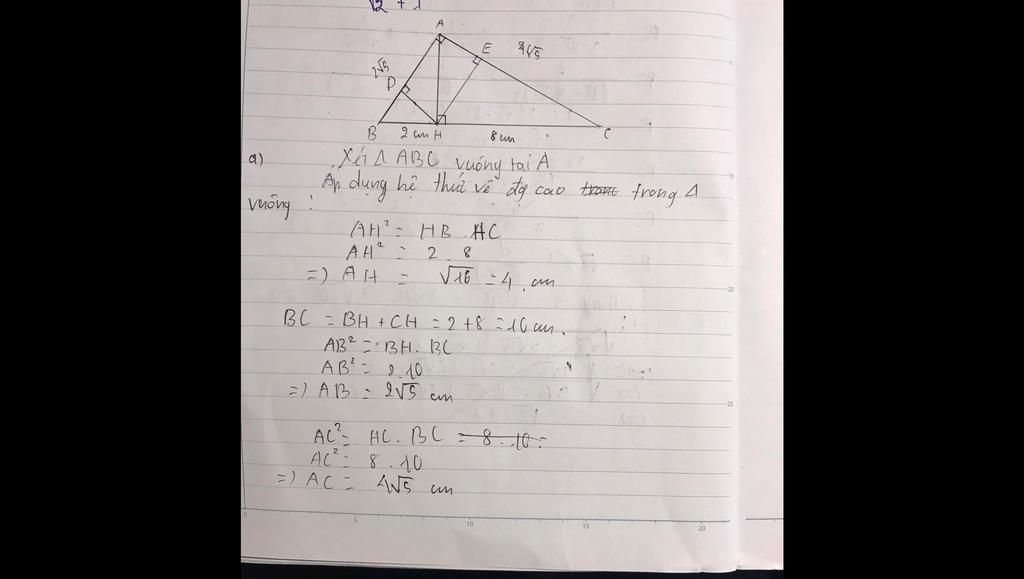 √2 + 1
A
E 4√5
2√5
D
B 2 cm H 8 cm C
a) Xét Δ ABC vuông tại A
Áp dụng hệ thức về đg cao trong Δ
vuông :
AH² = HB . HC
AH² = 2 . 8
=) AH = √16 = 4 cm
BC = BH + CH = 2 + 8 = 10 cm.
AB² = BH . BC
AB² = 2.10
=) AB = 2√5 cm
AC² = HC . BC = 8 . 10 =
AC² = 8 . 10
=) AC = 4√5 cm
15
20
25
0 5 10 15 20